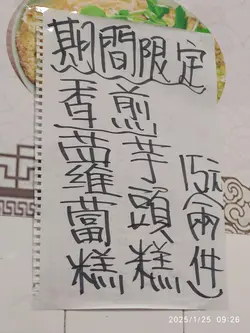 期間限定
香煎
蘿蔔糕
芋頭糕
15元兩件
2025/1/25 09:26